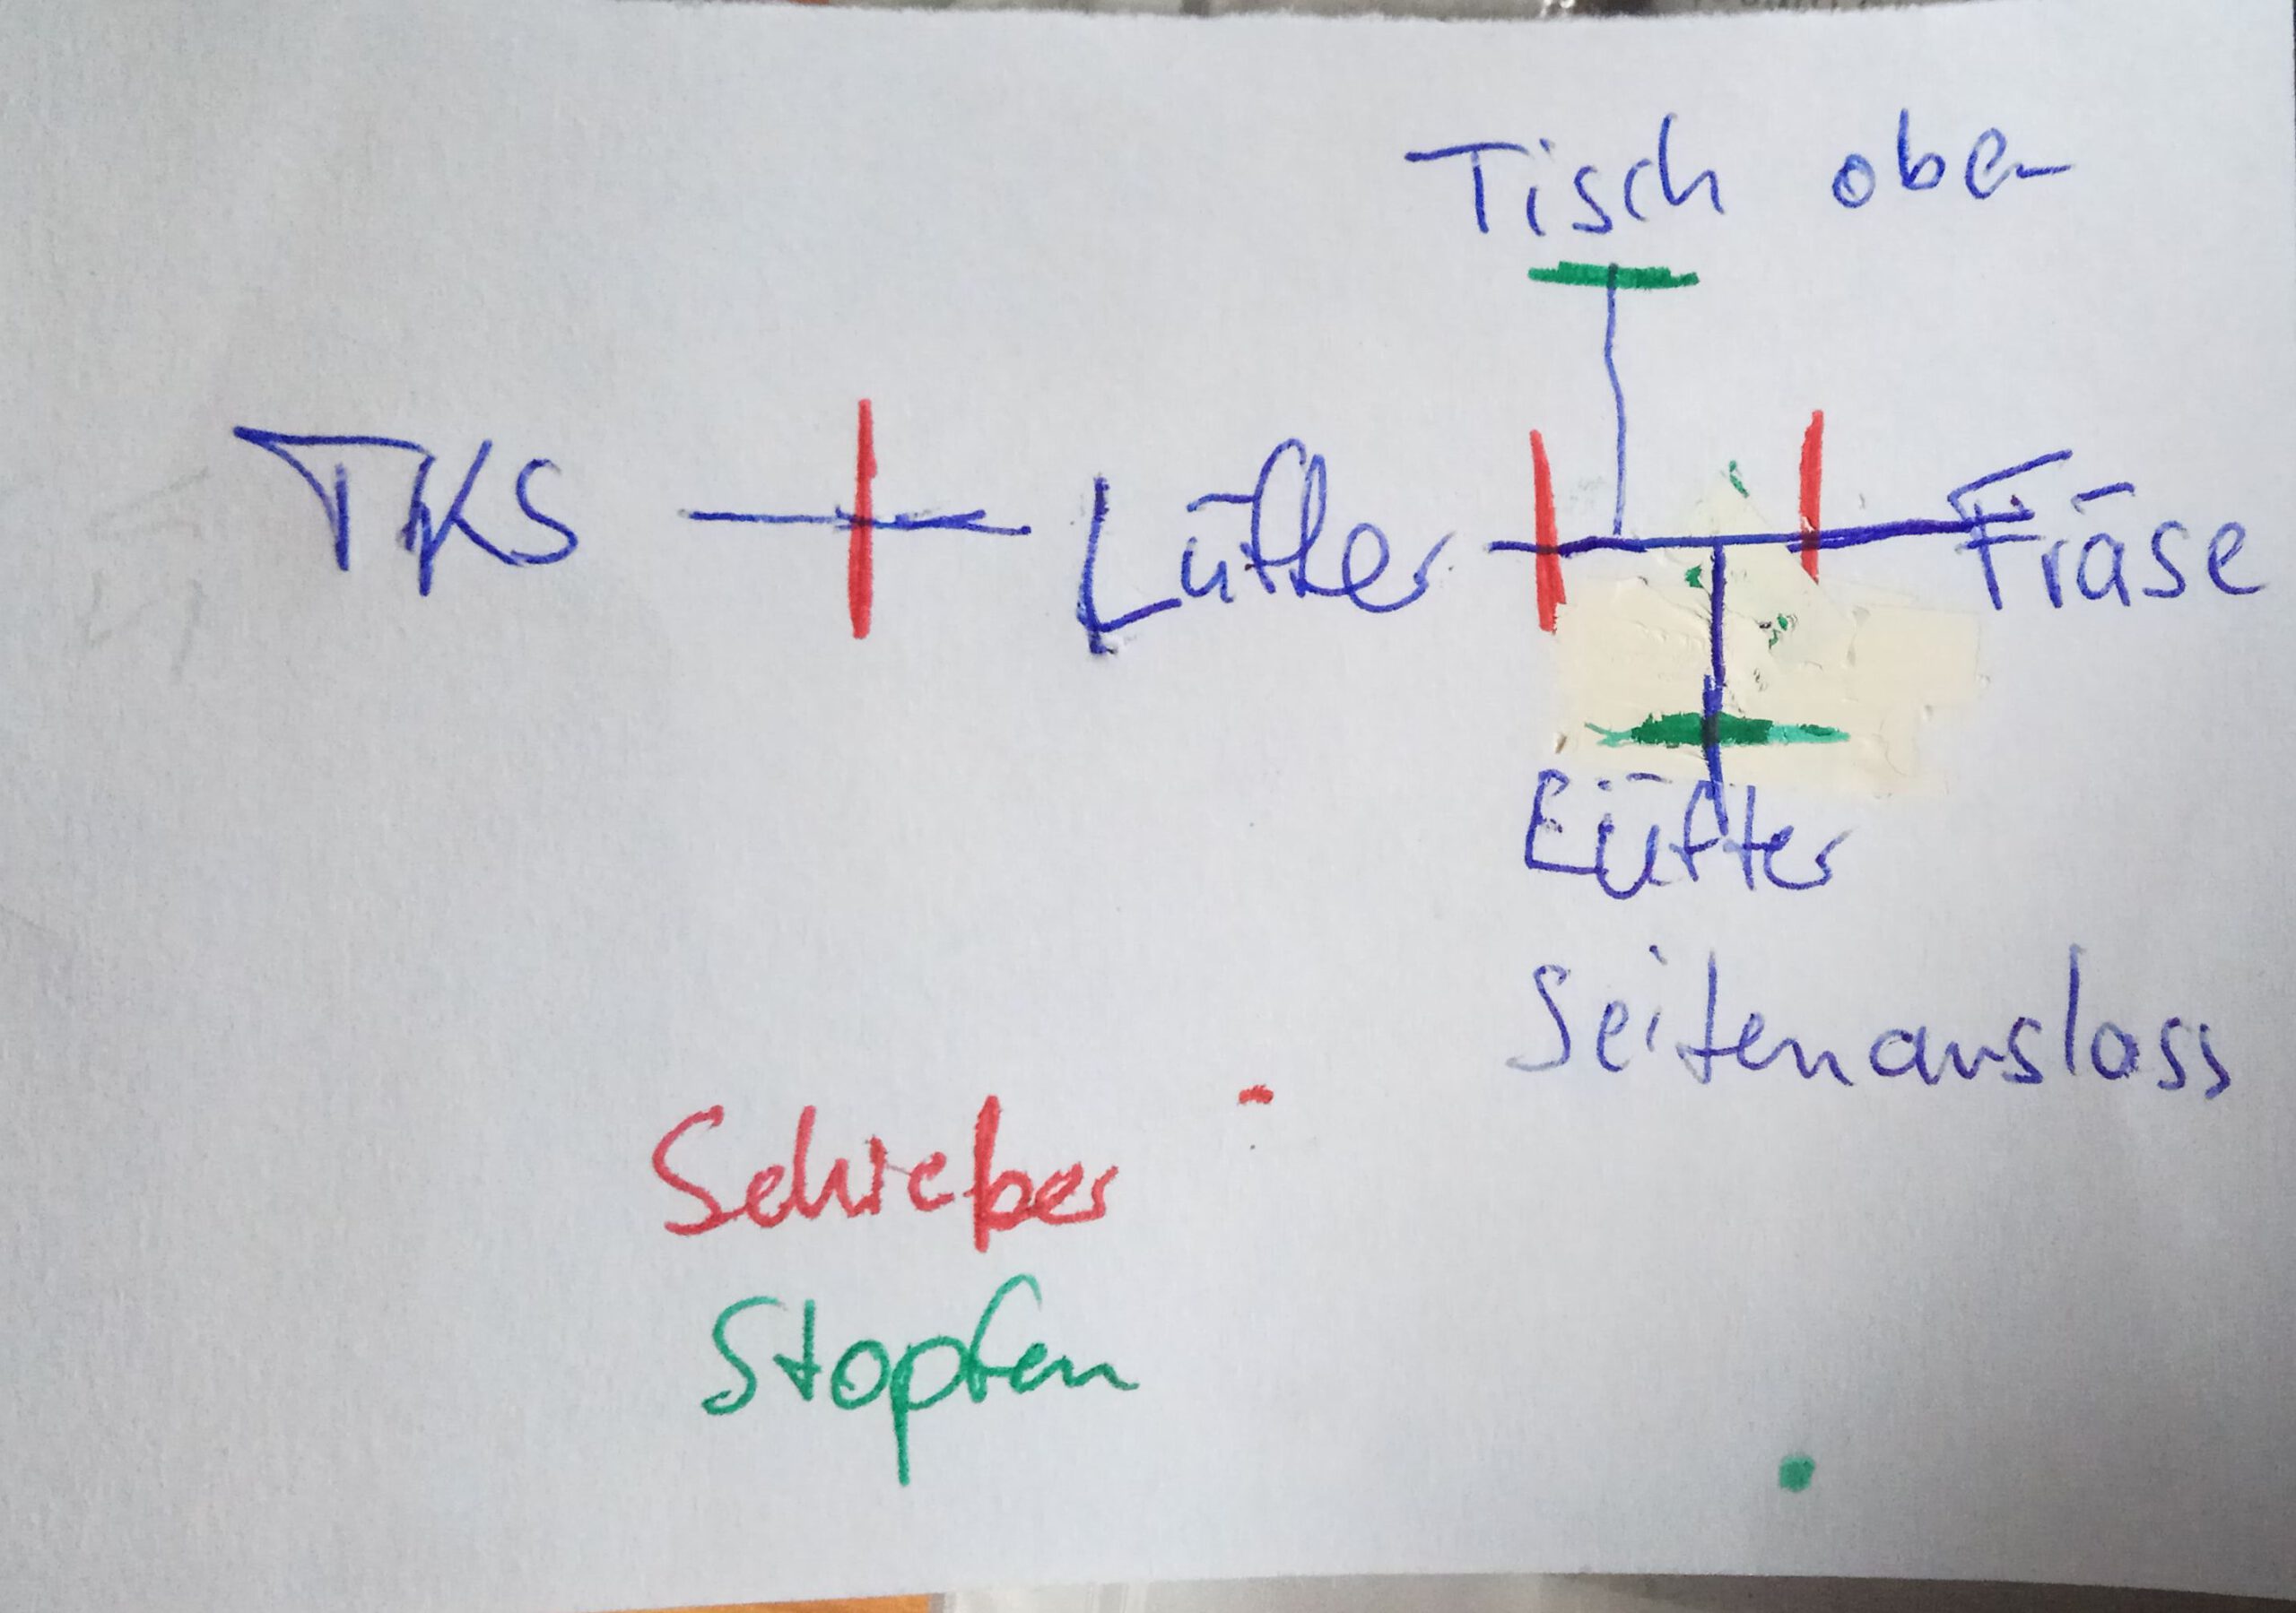 Tisch oben
TKS
Lüfter
Fräse
Lüfter
Seitenauslass
Schieber
Stopfen